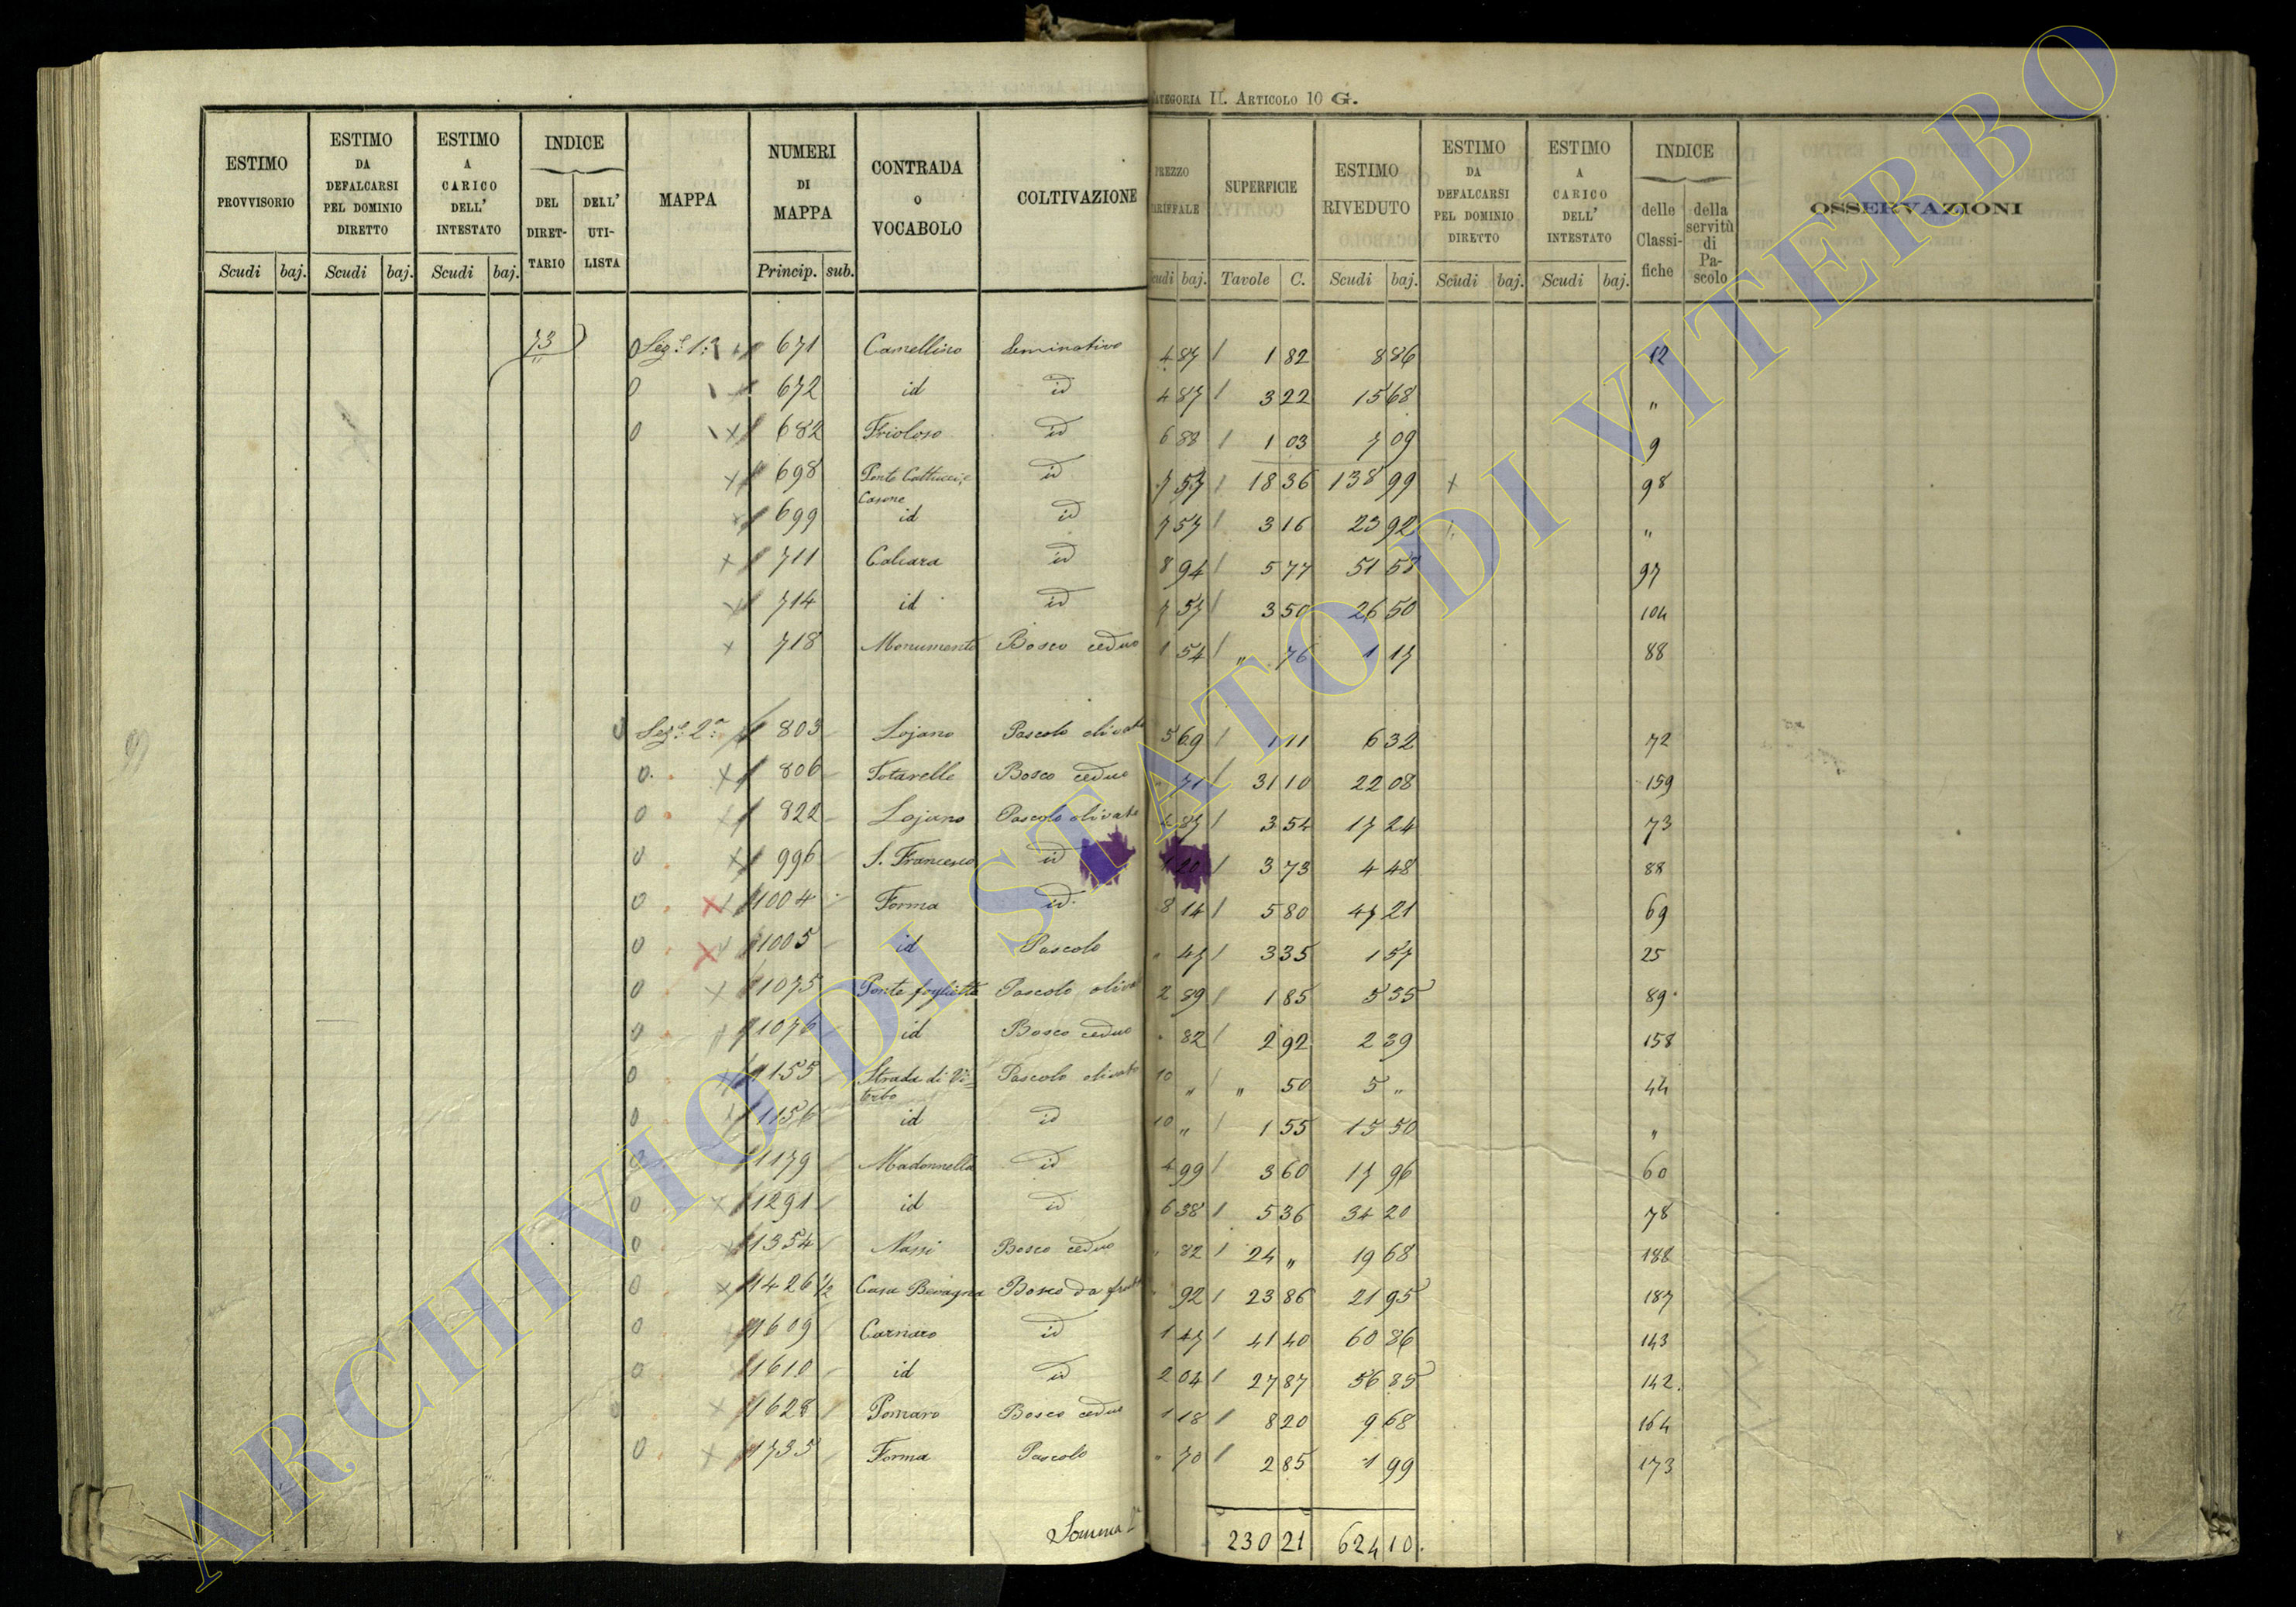 CATEGORIA II. ARTICOLO 10 G.
ESTIMO PROVVISORIO
Scudi baj.
ESTIMO DA DEFALCARSI PEL DOMINIO DIRETTO
Scudi baj.
ESTIMO A CARICO DELL' INTESTATO
Scudi baj.
INDICE
DEL DIRETTARIO
DELL' UTILISTA
MAPPA
NUMERI DI MAPPA
Princip. sub.
CONTRADA o VOCABOLO
COLTIVAZIONE
PREZZO TARIFFALE
Scudi baj.
SUPERFICIE
Tavole C.
ESTIMO RIVEDUTO
Scudi baj.
ESTIMO DA DEFALCARSI PEL DOMINIO DIRETTO
Scudi baj.
ESTIMO A CARICO DELL' INTESTATO
Scudi baj.
INDICE
delle Classifiche
della servitù di Pascolo
OSSERVAZIONI
73 Sez.e 1.a 671 Camellino Seminativo 4 87 1 82 8 86 12
0 672 id id 4 87 3 22 15 68 "
0 682 Frioloso id 6 88 1 03 7 09 9
698 Ponte Cattucci, Casone id 7 57 18 36 138 99 98
699 id id 7 57 3 16 23 92 "
711 Calcara id 8 94 5 77 51 58 97
714 id id 7 57 3 50 26 50 104
718 Monumento Bosco ceduo 1 54 " 76 1 17 88
0 Sez.e 2.a 803 Lojano Pascolo olivato 5 69 1 11 6 32 72
0 806 Totarelle Bosco ceduo " 71 31 10 22 08 159
0 822 Lojano Pascolo olivato 4 87 3 54 17 24 73
0 996 S. Francesco id 1 20 3 73 4 48 88
0 1004 Forma id 8 14 5 80 47 21 69
0 1005 id Pascolo " 47 3 35 1 57 25
0 1075 Ponte foglietta Pascolo oliv 2 89 1 85 5 35 89
0 1076 id Bosco ceduo " 82 2 92 2 39 158
0 1155 Strada di Viterbo Pascolo olivato 10 " " 50 5 " 44
0 1156 id id 10 " 1 55 15 50 "
0 1179 Madonnella id 4 99 3 60 17 96 60
0 1291 id id 6 38 5 36 34 20 78
0 1354 Nassi Bosco ceduo " 82 24 " 19 68 188
0 1426 1/2 Casa Bevagna Bosco da frutto " 92 23 86 21 95 187
0 1609 Carnaro id 1 47 41 40 60 86 143
0 1610 id id 2 04 27 87 56 85 142
1628 Pomaro Bosco ceduo 1 18 8 20 9 68 164
0 1735 Forma Pascolo " 70 2 85 1 99 173
Somma 2a 230 21 624 10.
ARCHIVIO DI STATO DI VITERBO